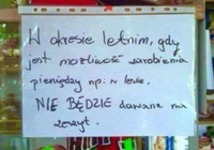 W okresie letnim, gdy
jest możliwość zarobienia
pieniędzy np: w lesie.
NIE BĘDZIE dawane na
zeszyt.